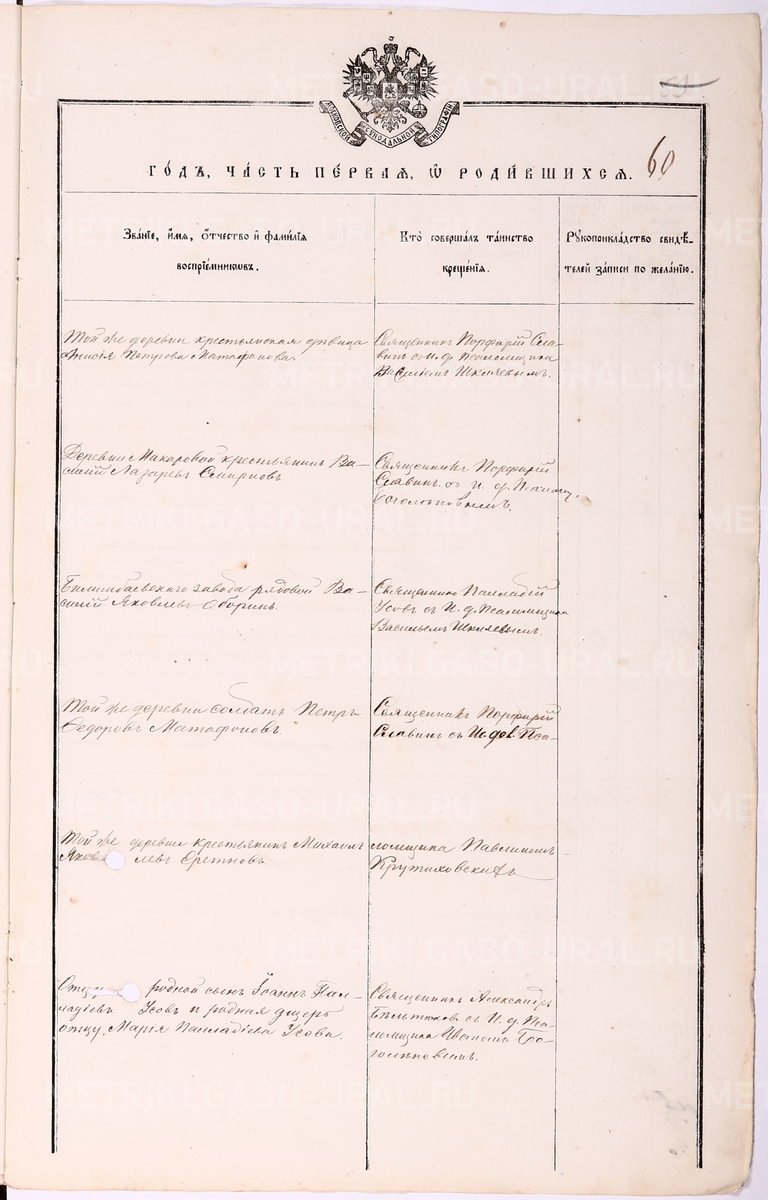 МОСКОВСКОЙ СѴНОДАЛЬНОЙ ТИПОГРАФІИ
60
ГО́ДЪ, ЧА́СТЬ ПЕ́РВАЯ, Ѡ҆ РОДИ́ВШИХСЯ.
Зва́нїе, и҆́мя, ѻ҆́тчество и҆ фами́лїя
воспрїе́мниковъ.
Кто̀ соверша́лъ та́инство
креще́нїя.
Рꙋкоприкла́дство свидѣ́-
телей за́писи по жела́нїю.
Той же деревни крестьянская дѣвица
Анисія Петрова Матафонова.
Священникъ Порфирій Сла-
винъ съ и. д. псаломщика
Василіемъ Шкляевымъ.
Деревни Макаровой крестьянинъ Ва-
силій Лазаревъ Смирновъ.
Священникъ Порфирій
Славинъ съ и. д. Псаломщ.
Билимбаевскаго завода рядовой Ва-
силій Яковлевъ Оборинъ.
Священникъ Палладій
Усовъ съ И. д. Псаломщика
Васильемъ Шкляевымъ.
Той же деревни солдатъ Петръ
Ѳедоровъ Матафоновъ.
Священникъ Порфирій
Славинъ съ Ис. дол. Пса-
Той же деревни крестьянинъ Михаилъ
Яковлевъ
ломщика Павлиномъ
Крутиховскимъ
Отцу родной сынъ Іоаннъ Пал-
ладіевъ Усовъ и родная дщерь
отцу, Марія Палладіева Усова.
Священникъ Александръ
съ И. д. Пса-
ломщика Иваномъ Бо-
голѣповымъ.
METRIKI.GASO-URAL.RU